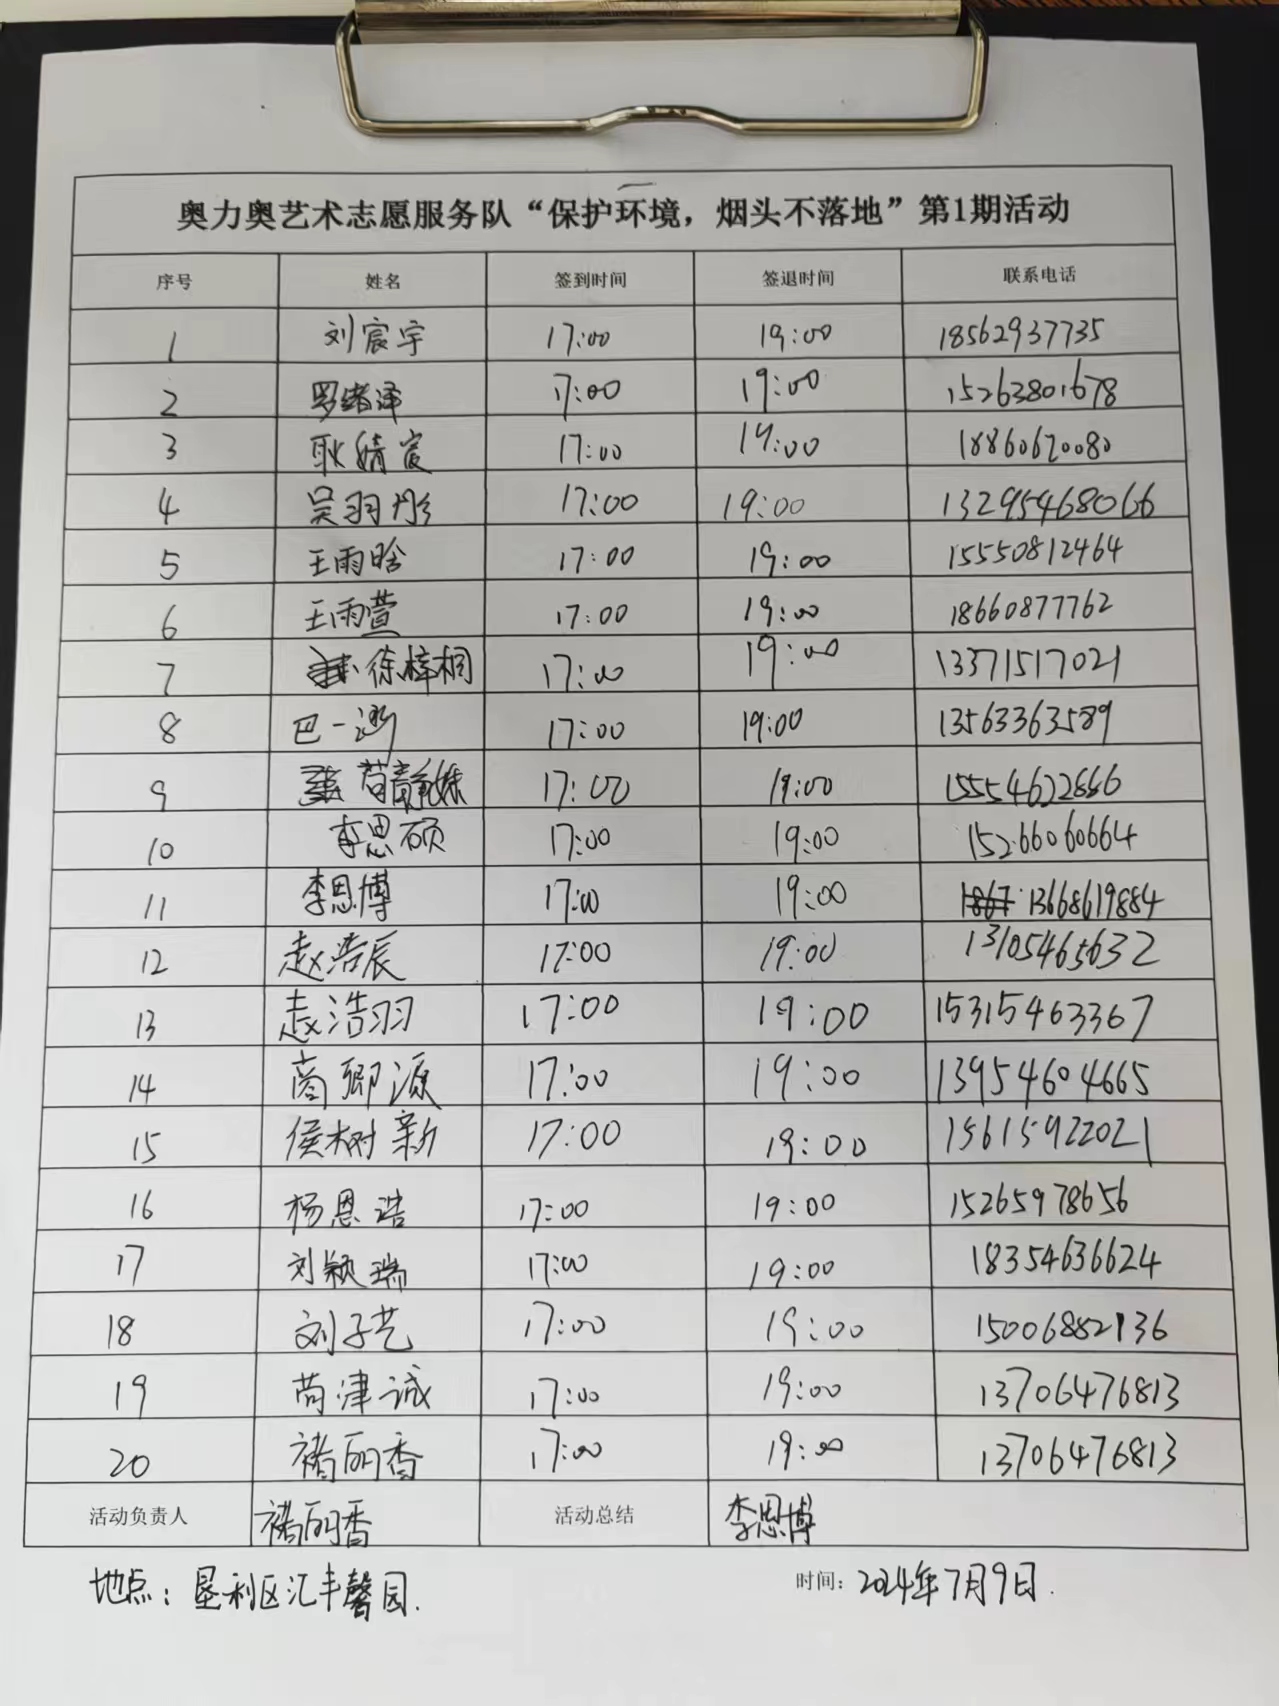 奥力奥艺术志愿服务队“保护环境，烟头不落地”第1期活动
序号 姓名 签到时间 签退时间 联系电话
1 刘宸宇 17:00 19:00 18562937735
2 罗绪泽 17:00 19:00 15263801678
3 耿婧宸 17:00 19:00 18860620080
4 吴羽彤 17:00 19:00 13295468066
5 王雨晗 17:00 19:00 15550812464
6 王雨萱 17:00 19:00 18660877762
7 徐梓桐 17:00 19:00 13371517021
8 巴一 17:00 19:00 13563363589
9 17:00 19:00
10 李思硕 17:00 19:00 15266060664
11 李恩博 17:00 19:00 13668619884
12 赵浩辰 17:00 19:00 13105465632
13 赵浩羽 17:00 19:00 15315463367
14 卿源 17:00 19:00 13954604665
15 侯树新 17:00 19:00 15615922021
16 杨恩浩 17:00 19:00 15265978656
17 刘颖瑞 17:00 19:00 18354636624
18 刘子艺 17:00 19:00 15006882136
19 津诚 17:00 19:00 13706476813
20 褚丽香 17:00 19:00 13706476813
活动负责人 褚丽香 活动总结 李恩博
地点：垦利区汇丰馨园. 时间：2024年7月9日.